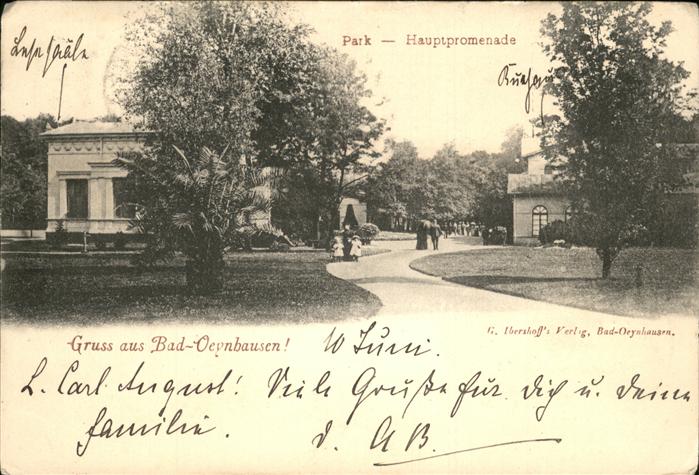 Lesesääle
Park — Hauptpromenade
Kurhaus
Gruss aus Bad-Oeynhausen!
G. Ibershoff's Verlag, Bad-Oeynhausen.
10 Juni.
L. Carl August! Viele Grüße für Dich u. deine
Familie. d. AB.